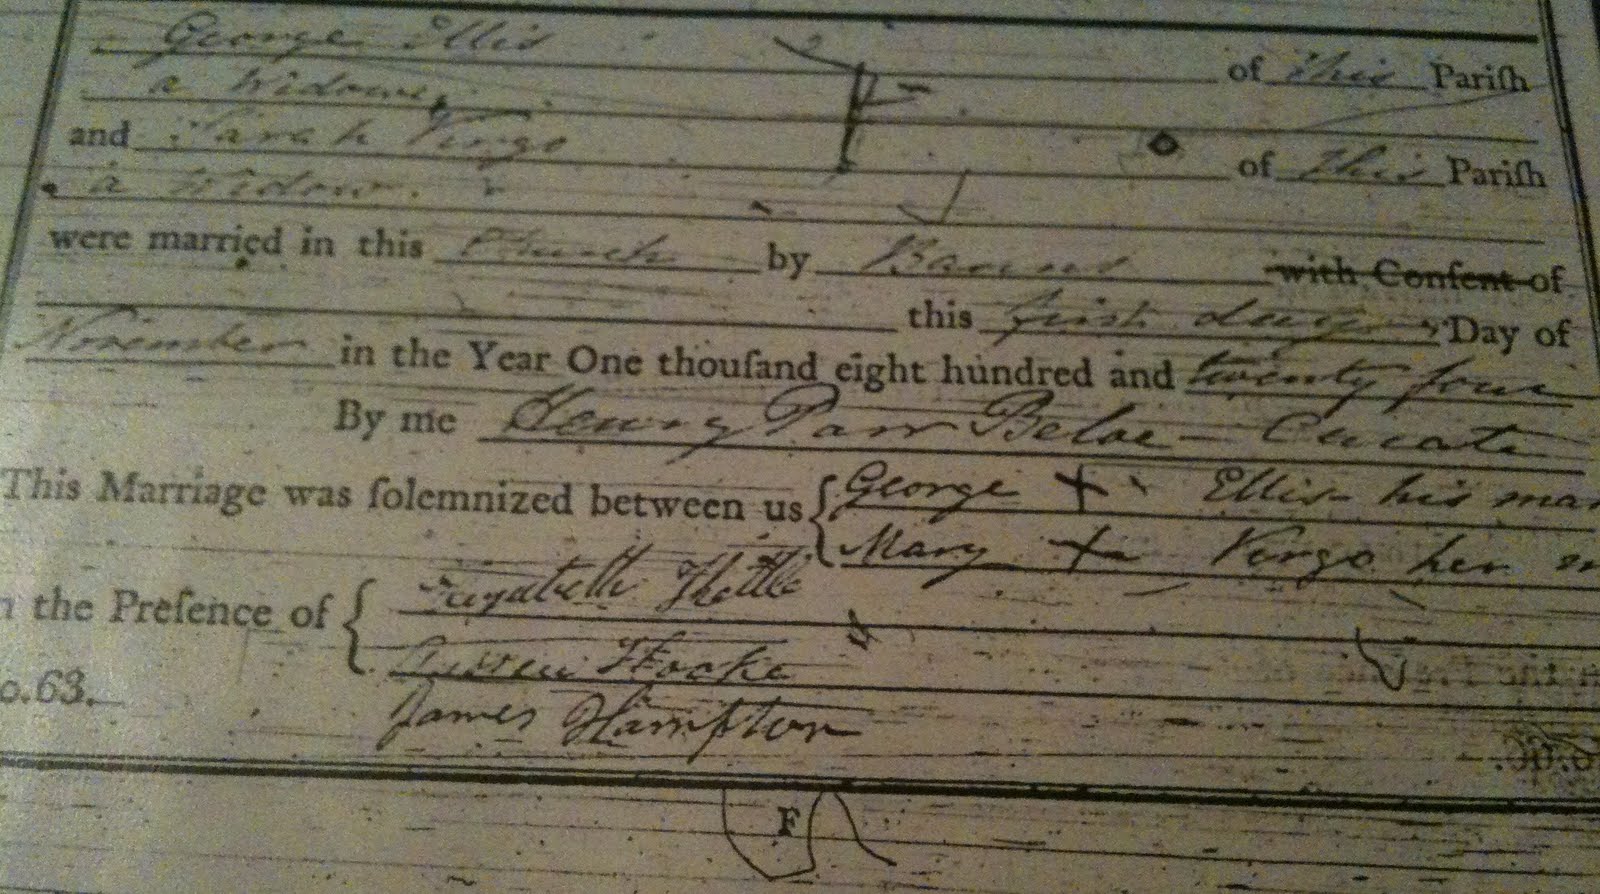 George Ellis of this Pariſh
a Widower
and Sarah Virgo of this Pariſh
a Widow.
were married in this Church by Banns with Conſent of
this first day Day of
November in the Year One thouſand eight hundred and twenty four
By me Henry Parr Beloe - Curate
This Marriage was ſolemnized between us George + Ellis his mar
Mary + Virgo her m
n the Preſence of Elizabeth Kettle
Hooke
o.63.
James Hampton
F